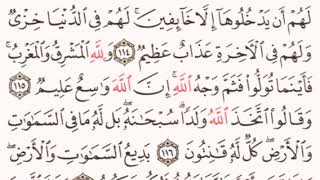 لَهُمْ أَن يَدْخُلُوهَا إِلَّا خَآئِفِينَ ۚ لَهُمْ فِى الدُّنْيَا خِزْىٌ
وَلَهُمْ فِى الْـَٔاخِرَةِ عَذَابٌ عَظِيمٌ ١١٤ وَلِلَّهِ الْمَشْرِقُ وَالْمَغْرِبُ ۚ
فَأَيْنَمَا تُوَلُّوا۟ فَثَمَّ وَجْهُ اللَّهِ ۚ إِنَّ اللَّهَ وَٰسِعٌ عَلِيمٌ ١١٥
وَقَالُوا۟ اتَّخَذَ اللَّهُ وَلَدًا ۗ سُبْحَٰنَهُۥ ۖ بَل لَّهُۥ مَا فِى السَّمَٰوَٰتِ
وَالْأَرْضِ ۖ كُلٌّ لَّهُۥ قَٰنِتُونَ ١١٦ بَدِيعُ السَّمَٰوَٰتِ وَالْأَرْضِ ۖ